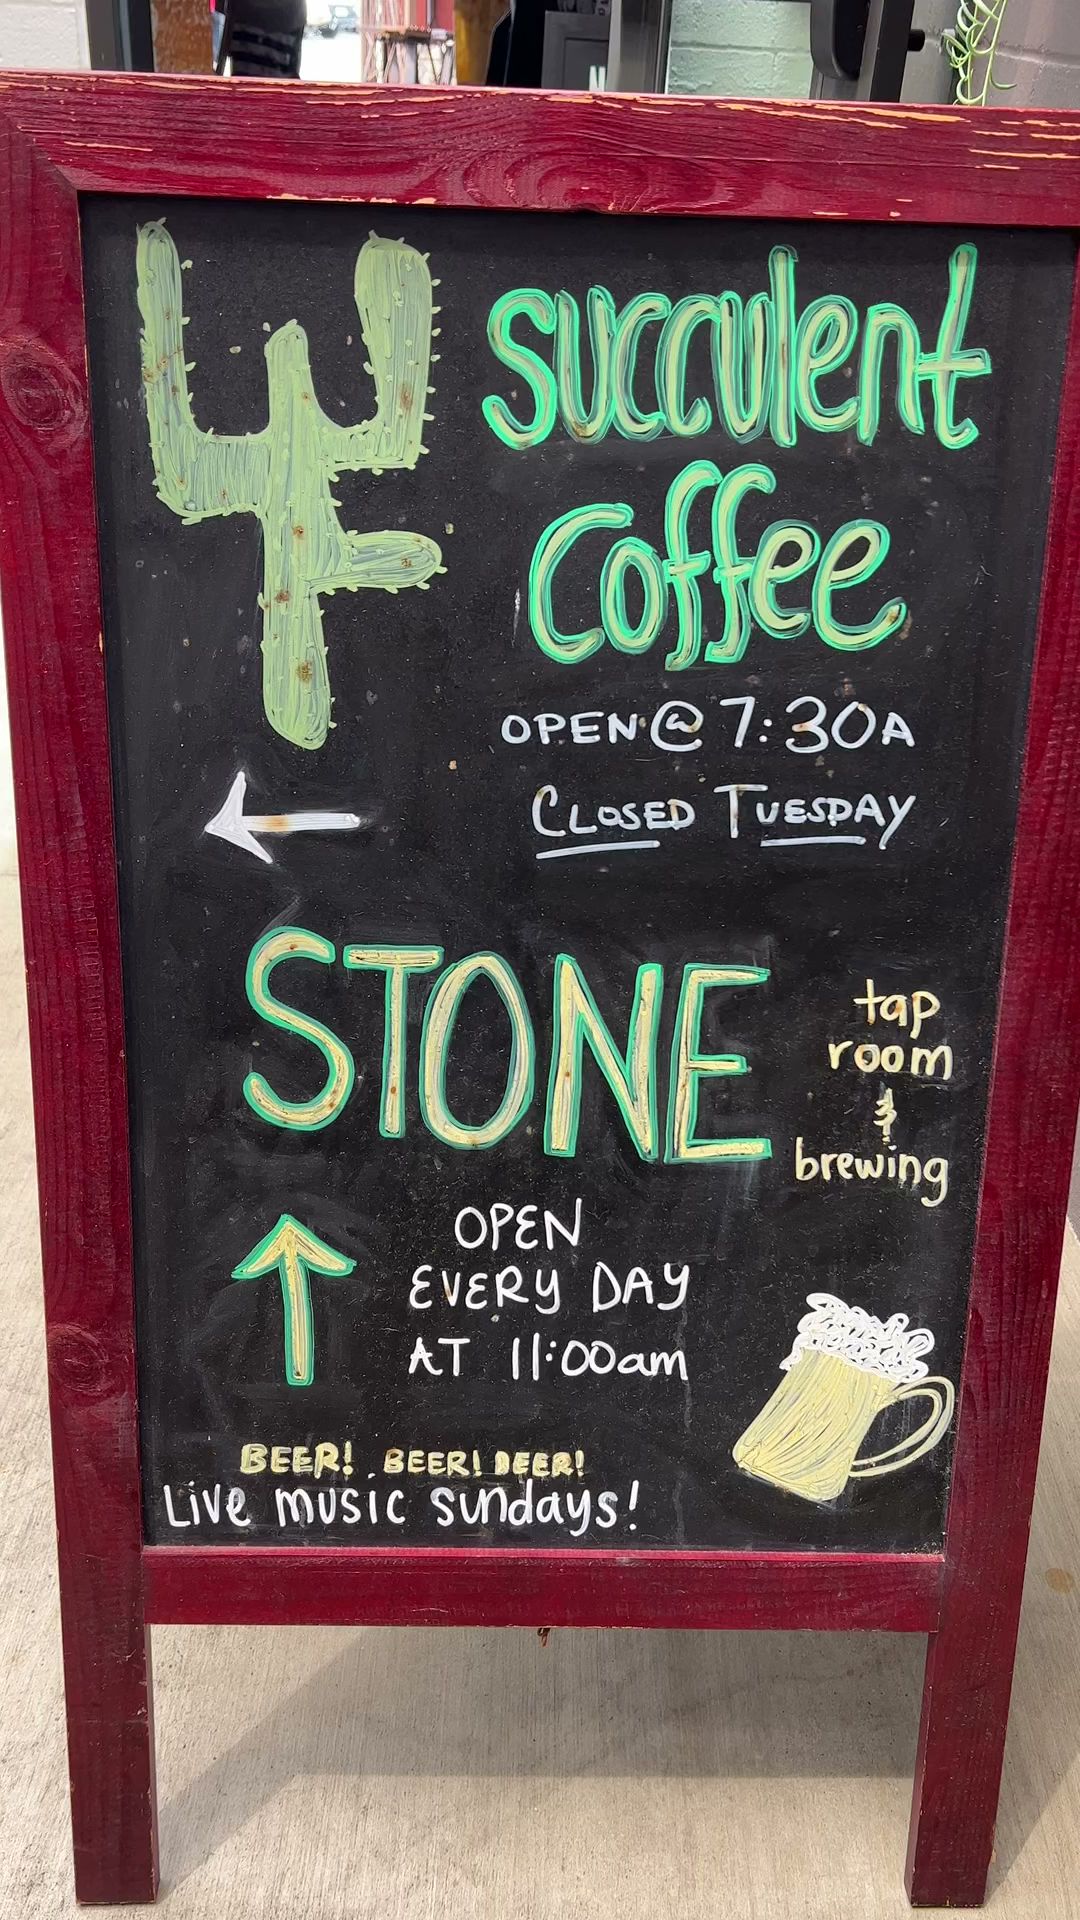 succulent
coffee
OPEN @ 7:30A
CLOSED TUESDAY
STONE
tap
room
&
brewing
OPEN
EVERY DAY
AT 11:00am
BEER! BEER! BEER!
Live music sundays!